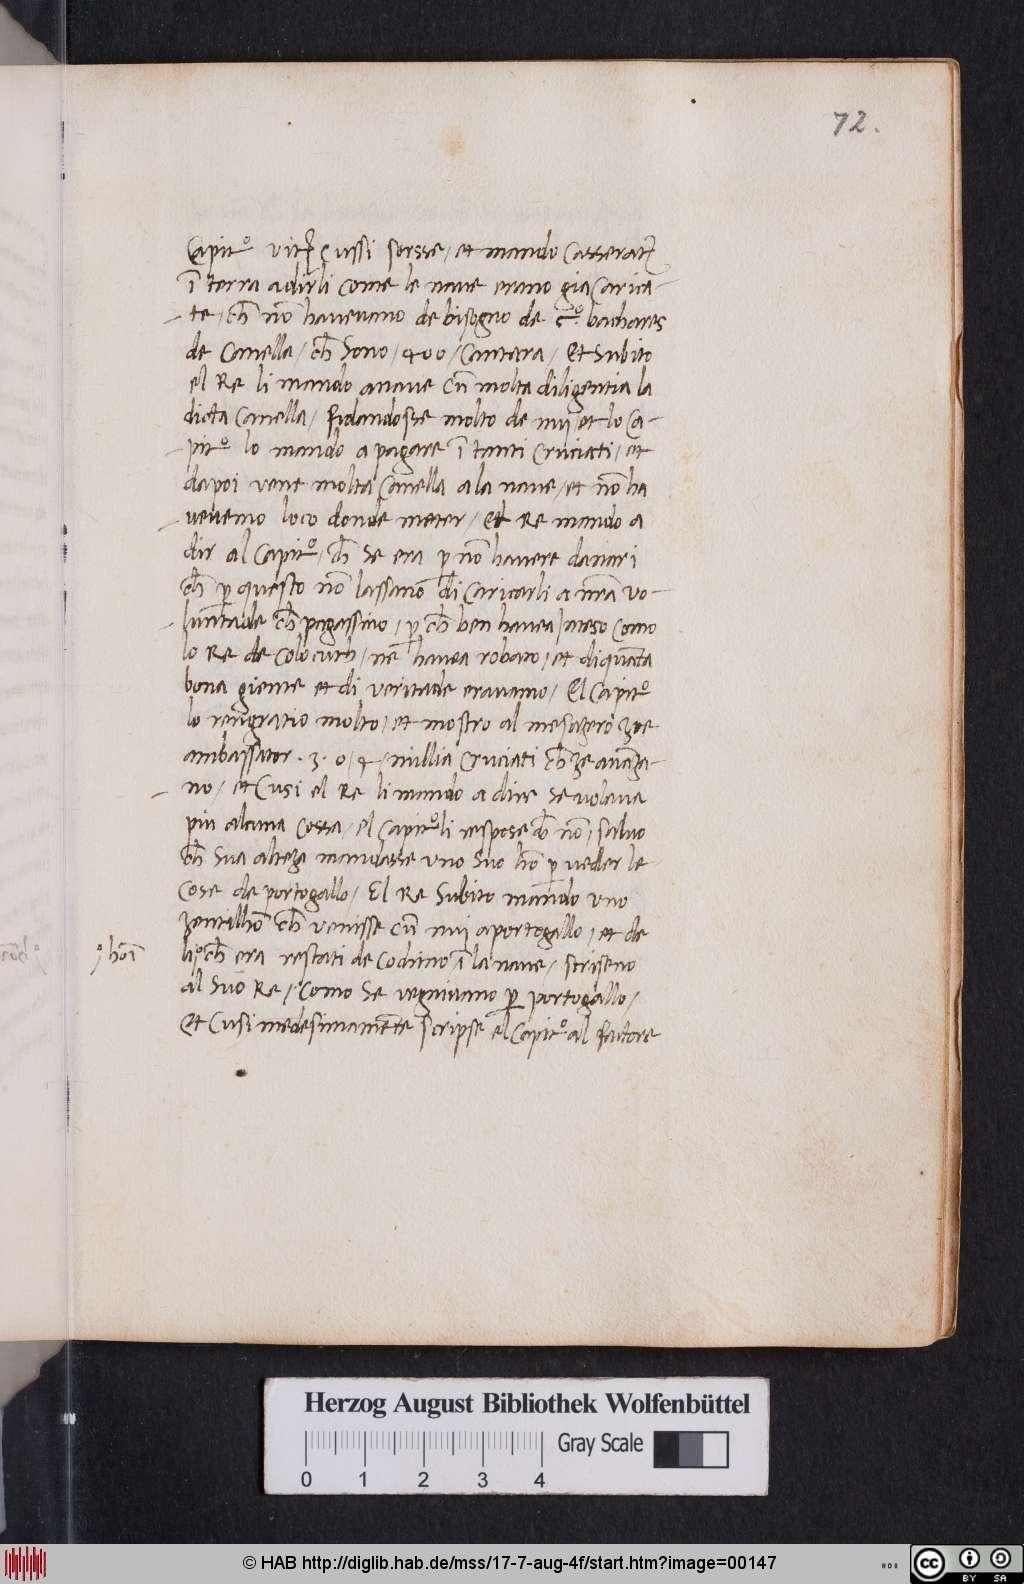 72.
Capit.º vitꝑ cussi sorsse / et mando Casserati
ī terra a dirli come le naue erano gia Carica-
te / ch̄ nō haueuano de bisogno de c.º bachares
de Canella / ch̄ Sono / 400 / Cantara / Et Subito
el Re li mando a naue cū molta diligentia la
dicta Canella / fidandosse molto de nui / et lo Ca-
pit.º lo mando a pagare ī tanti Cruciati / et
dapoi vene molta Canella a la naue / et nō ha
ueuemo loco donde meter / El Re mando a
dir al Capit.º / ch̄ se era ꝑ nō hauere danari
ch̄ ꝑ questo nō lassano di Caricarli a nr̄a vo-
luntade ch̄ pagassino / ꝑ ch̄ ben hauea Inteso Como
lo Re de Colocuth / ne hauea robato / et di quāta
bona giente et di veritade erauamo / El Capit.º
lo rengratio molto / et mostro al mesagero zoe
ambassator . 3 . o / 4 / millia Cruciati ch̄ ze auāza-
no / et Cusi el Re li mando a dire se voleua
piu alcuna Cossa / el Capit.º li respose ch̄ nō / saluo
ch̄ Sua alteza mandasse vno Suo hō ꝑ veder le
Cose de portogallo / El Re Subito mando vno
zentilhō ch̄ venisse cū nui a portogallo / et de
li ch̄ era restati de Codimo ī la naue / scriseno
al Suo Re / Como Se vegniuamo ꝑ portogallo /
Et Cusi medesimamēte scripse el Capit.º al factore
hoī
Herzog August Bibliothek Wolfenbüttel
Gray Scale
0 1 2 3 4
© HAB http://diglib.hab.de/mss/17-7-aug-4f/start.htm?image=00147
cc BY SA